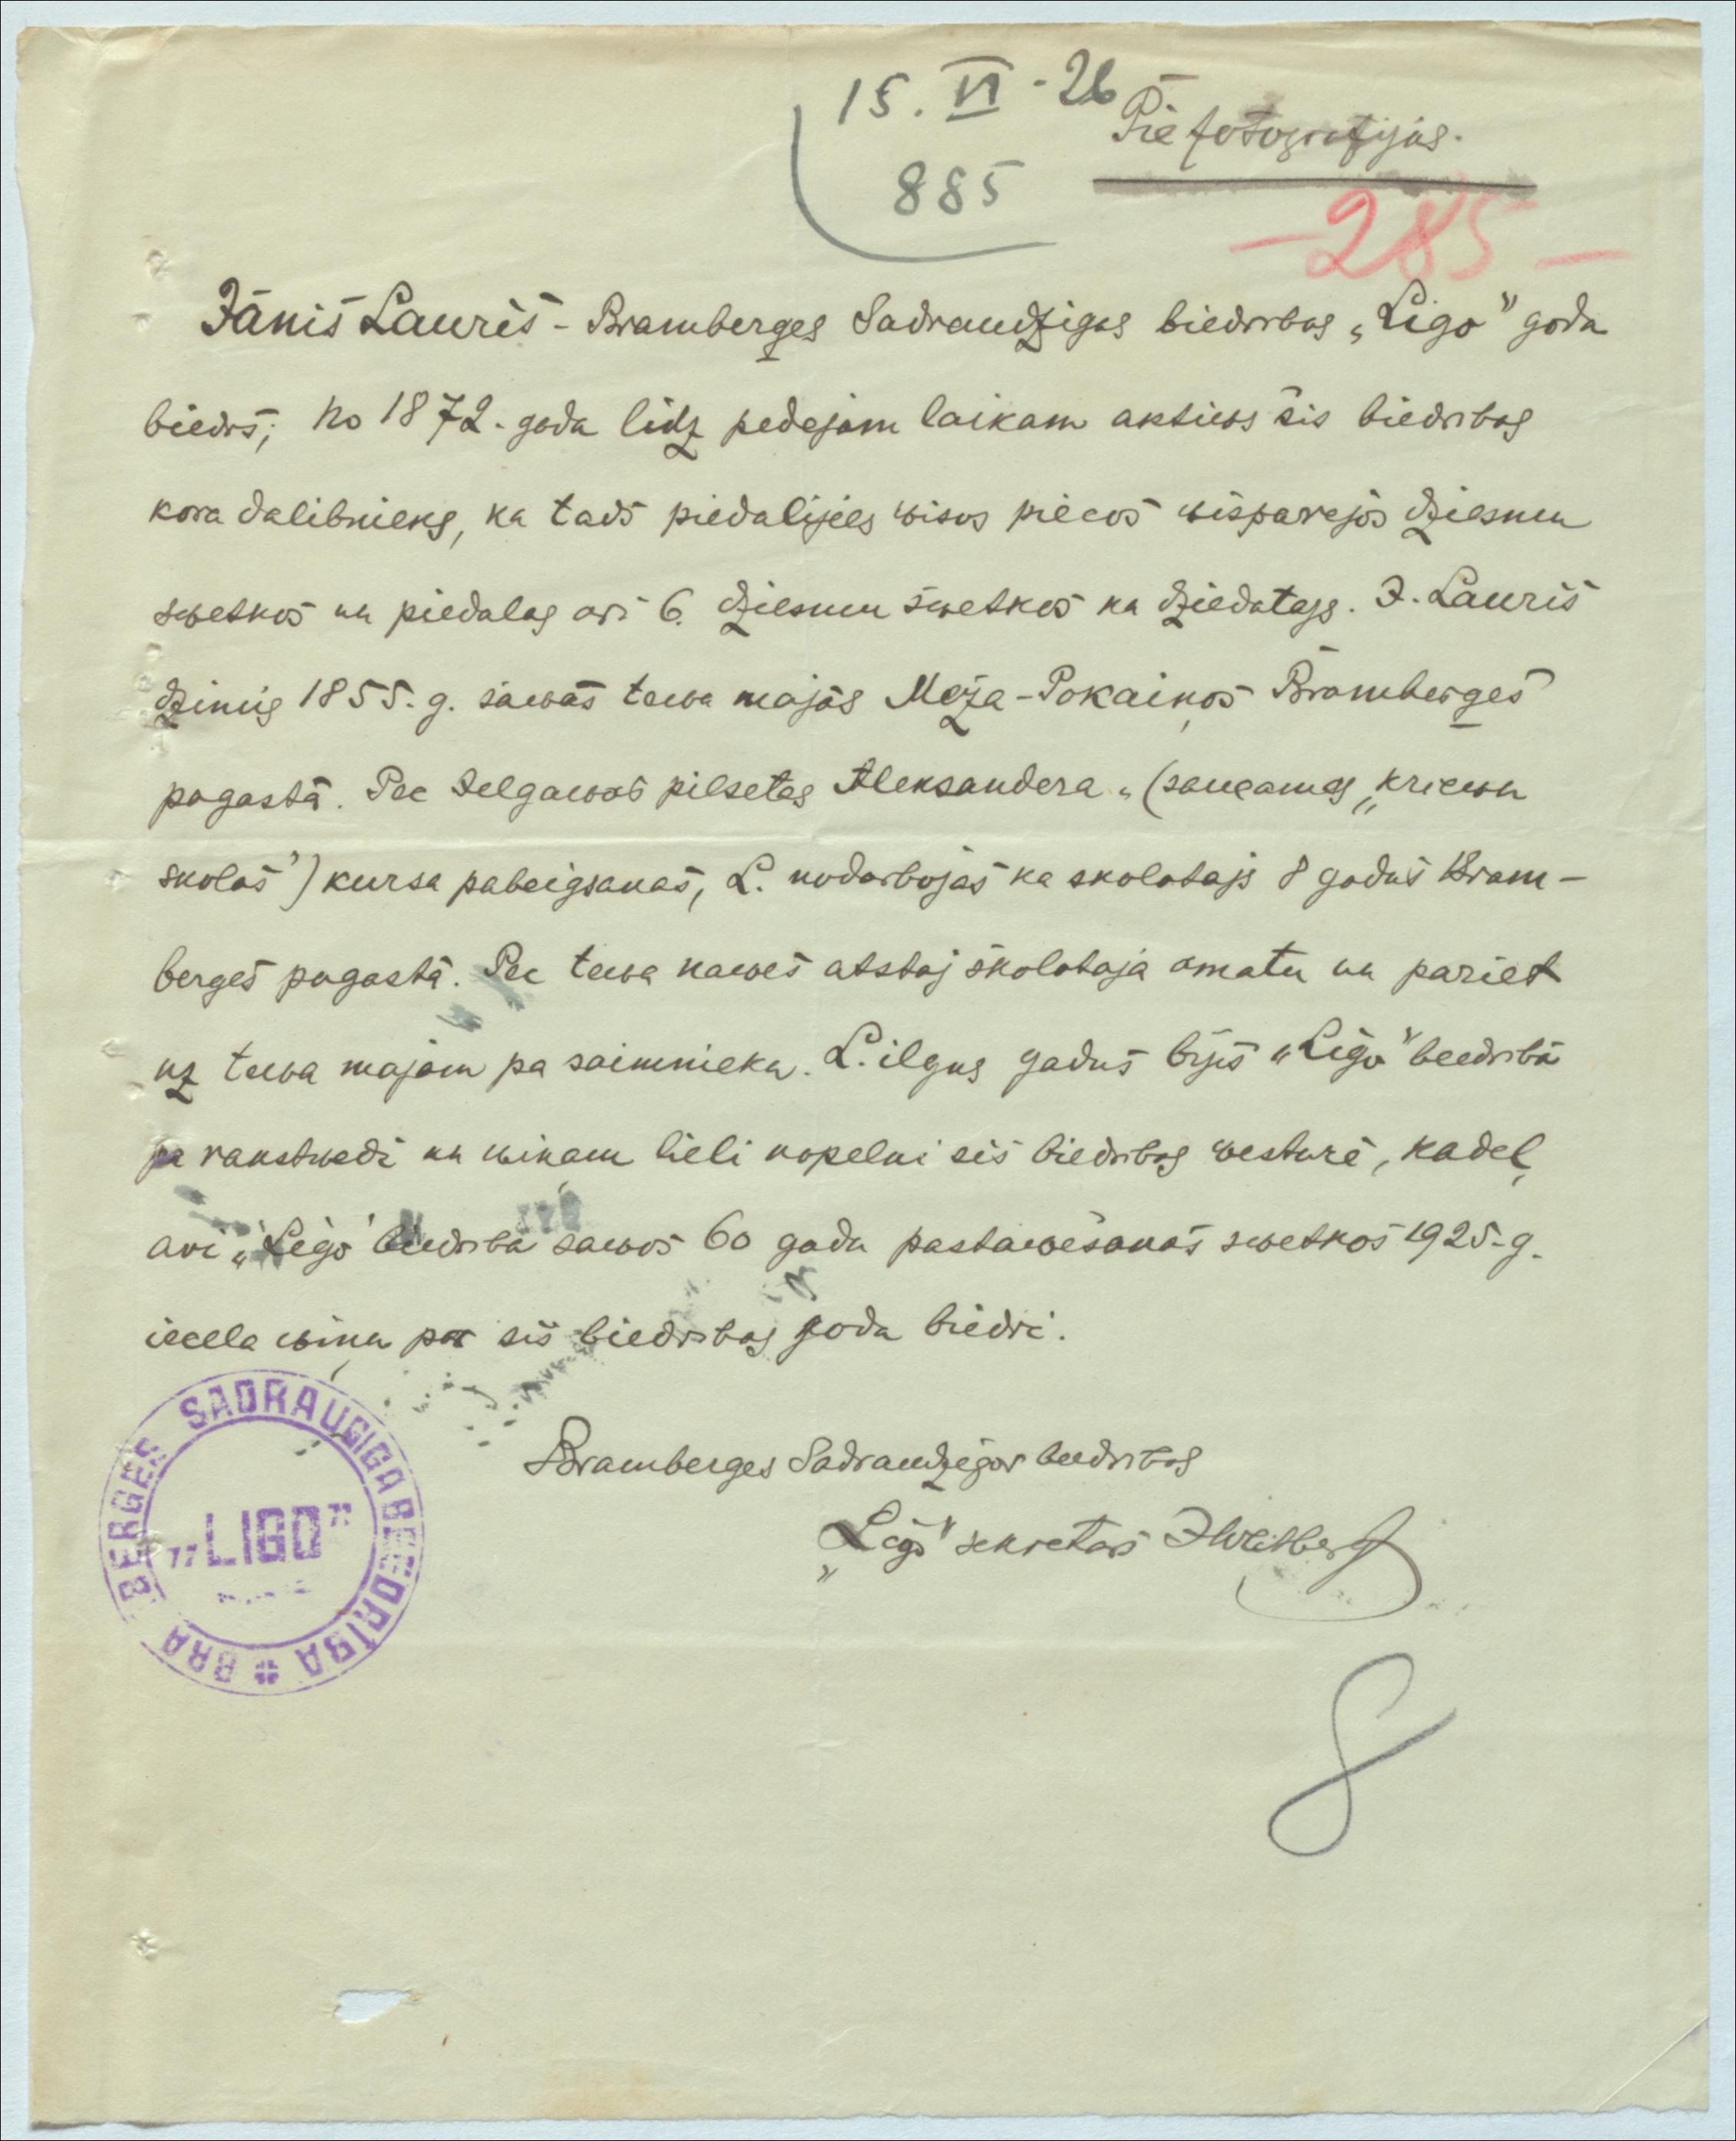 15. VI - 26
Pie fotografijas.
885
- 285 -
Jānis Lauris - Bramberges Sadraudzigas biedribas „Ligo" goda
biedrs; no 1872. goda lidz pedejam laikam aktiws šis biedribas
kora dalibnieks, ka tads piedalijies wisos piecos wisparejos dziesmu
swetkos un piedalas ari 6. dziesmu swetkos ka dziedatajs. J. Lauris
dzimis 1855. g. sawas tewa majas Meža-Pokaiņos Bramberges
pagastā. Pec Jelgawas pilsetas Aleksandera „(saucamas „kriewu
skolas") kursa pabeigšanas, L. nodarbojas ka skolotajs 8 gadus Bram-
berges pagastā. Pec tewa nawes atstaj skolotaja amatu un pariet
uz tewa majam pa saimnieku. L. ilgus gadus bijis „Ligo" beedribā
pa rakstwedi un wiņam lieli nopelni šis biedribas westurē, kadeļ
ari „Ligo" beedriba sawos 60 gadu pastawēšanas swetkos 1925. g.
iecela wiņu par šis biedribas goda biedri.
Bramberges Sadraudzigas beedribas
„Ligo" sekretars
BRA BERGES SADRAUGIGA BEEDRĪBA
„LIGO"
8